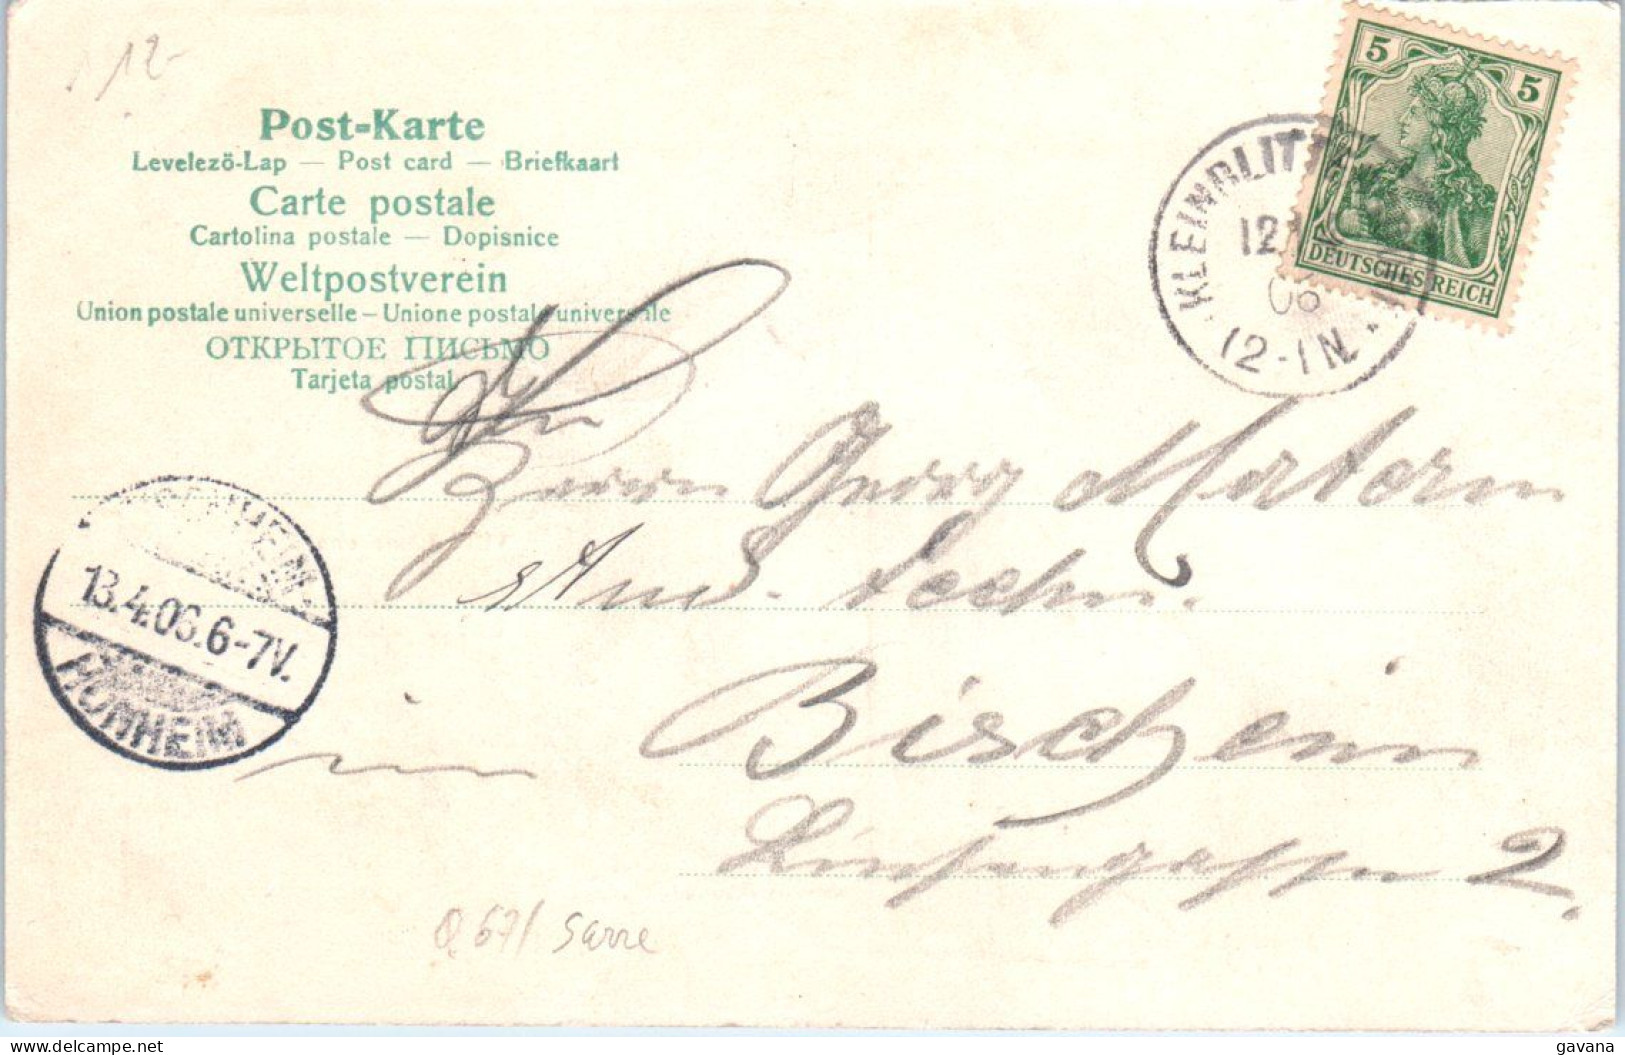 12-
Post-Karte
Levelezö-Lap — Post card — Briefkaart
Carte postale
Cartolina postale — Dopisnice
Weltpostverein
Union postale universelle – Unione postale universale
ОТКРЫТОЕ ПИСЬМО
Tarjeta postal
5 5
DEUTSCHES REICH
KLEINBLITT
12
06
12-1N.
An
Herrn Georg Matern
stud. techn.
in Bischheim
Linsengasse 2.
13.4.06.6-7V.
HÖNHEIM
Sarre
delcampe.net
gavana